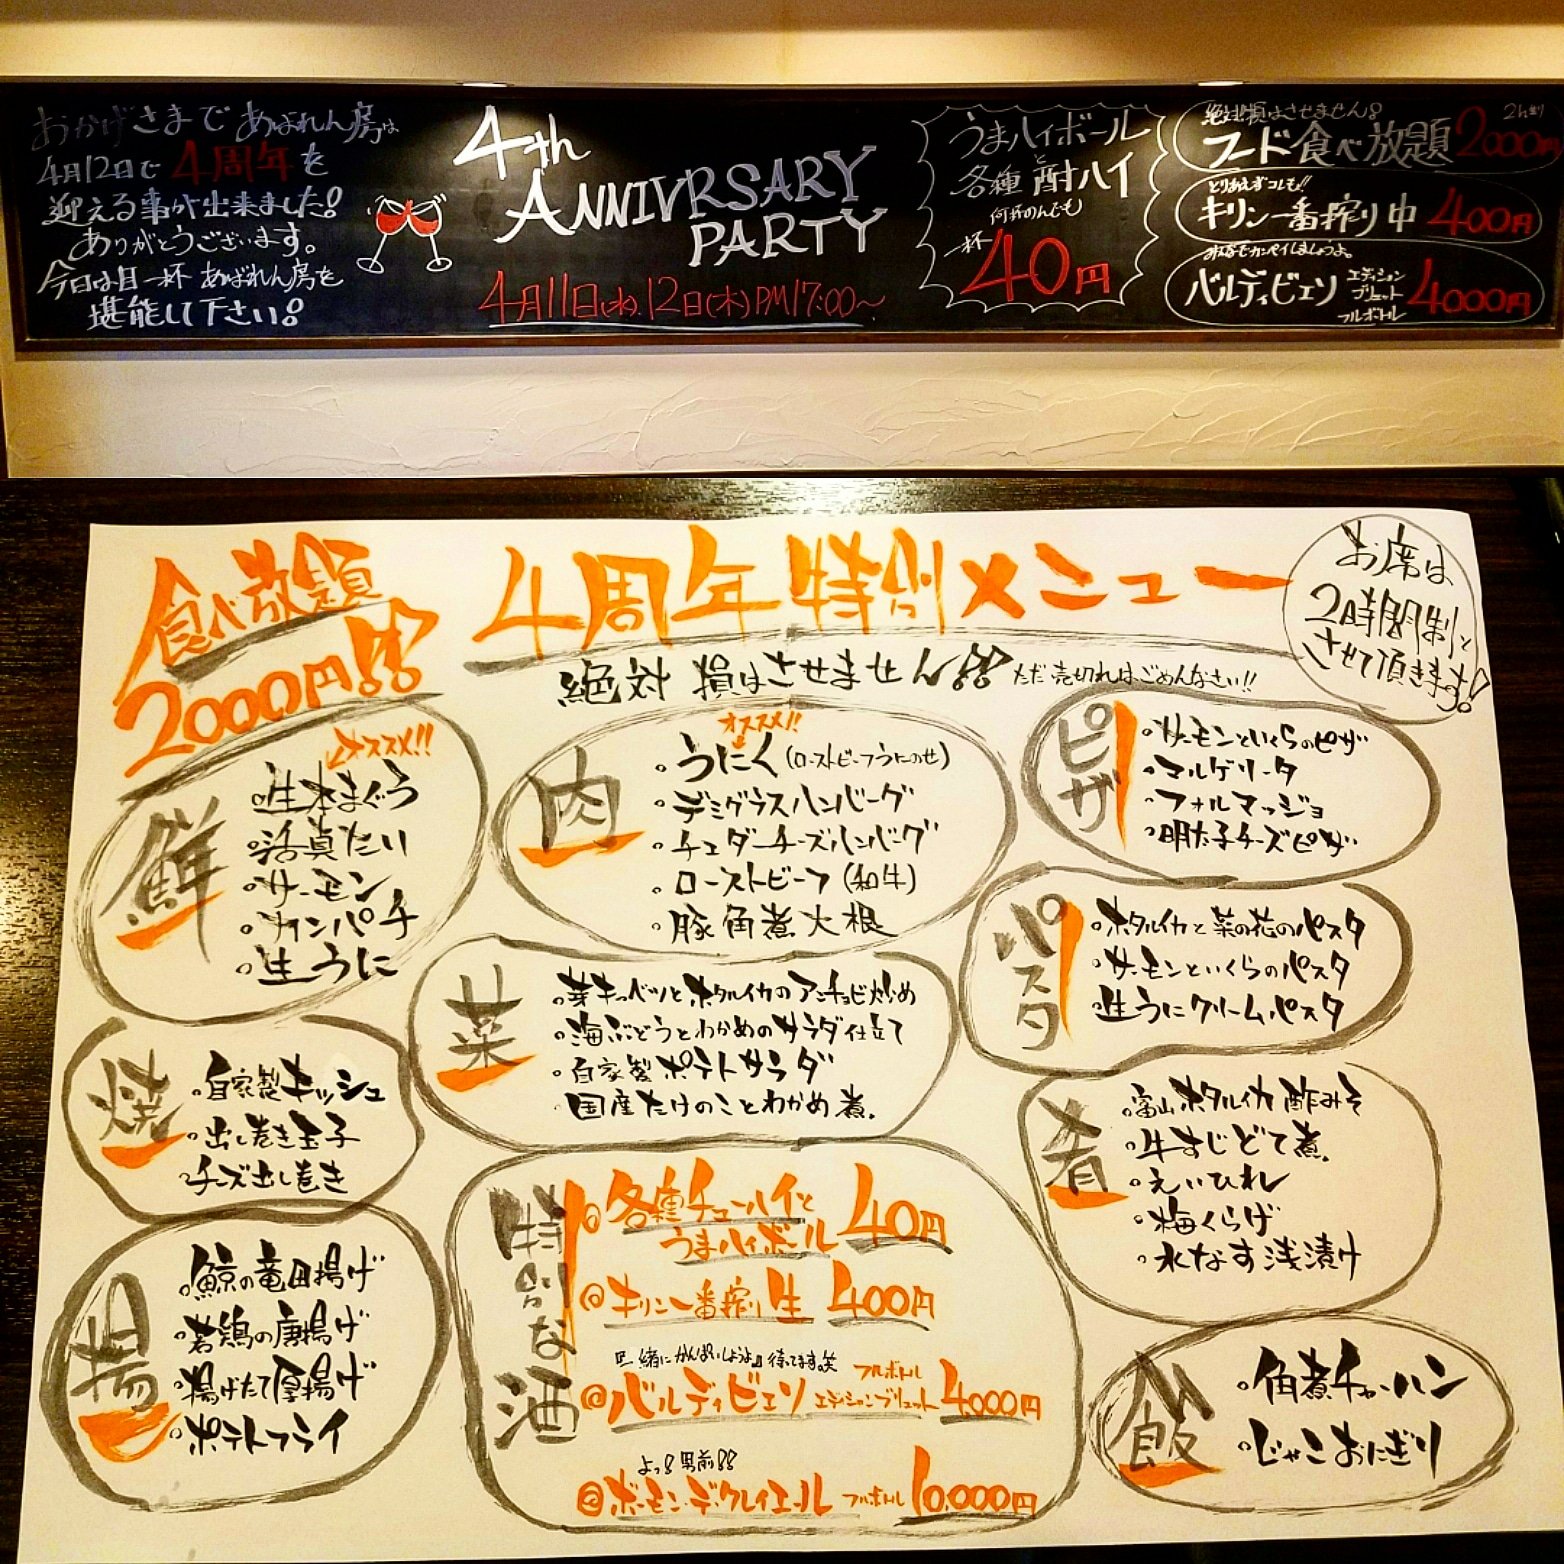 おかげさまで あばれん房は
4月12日で 4周年を
迎える事が出来ました!
ありがとうございます。
今日は目一杯 あばれん房を
堪能して下さい!
4th
ANNIVRSARY
PARTY
4月11日(水).12日(木)PM17:00〜
うまハイボール
と
各種 酎ハイ
何杯のんでも
一杯 40円
絶対損はさせません! 2h制
フード食べ放題 2000円
とりあえずコレも!!
キリン一番搾り中 400円
みんなでカンパイしましょうよ。
バルディビエソ エディション ブリュット フルボトル 4000円
食べ放題
2000円!!
4周年特別メニュー
絶対 損はさせません!! ただ売切れはごめんなさい!!
お席は
2時間制と
させて頂きます!
鮮
オススメ!!
生本まぐろ
活真たい
サーモン
カンパチ
生うに
肉
オススメ!!
うにく(ローストビーフうにのせ)
デミグラスハンバーグ
チェダーチーズハンバーグ
ローストビーフ(和牛)
豚角煮大根
ピザ
サーモンといくらのピザ
マルゲリータ
フォルマッジョ
明太子チーズピザ
パスタ
ホタルイカと菜の花のパスタ
サーモンといくらのパスタ
生うにクリームパスタ
菜
芽キャベツとホタルイカのアンチョビ炒め
海ぶどうとわかめのサラダ仕立て
自家製ポテトサラダ
国産たけのことわかめ煮.
焼
自家製キッシュ
出し巻き玉子
チーズ出し巻き
肴
富山ホタルイカ酢みそ
牛すじどて煮.
えいひれ
梅くらげ
水なす浅漬け
揚
鯨の竜田揚げ
若鶏の唐揚げ
揚げたて厚揚げ
ポテトフライ
特別な酒
各種チューハイと
うまハイボール 40円
キリン一番搾り 生 400円
『一緒にかんぱいしようよ』待ってます。笑
バルディビエソ エディションブリュット フルボトル 4,000円
よっ!男前!!
ボーモン・デ・クレイエール フルボトル 10,000円
飯
角煮チャーハン
じゃこおにぎり